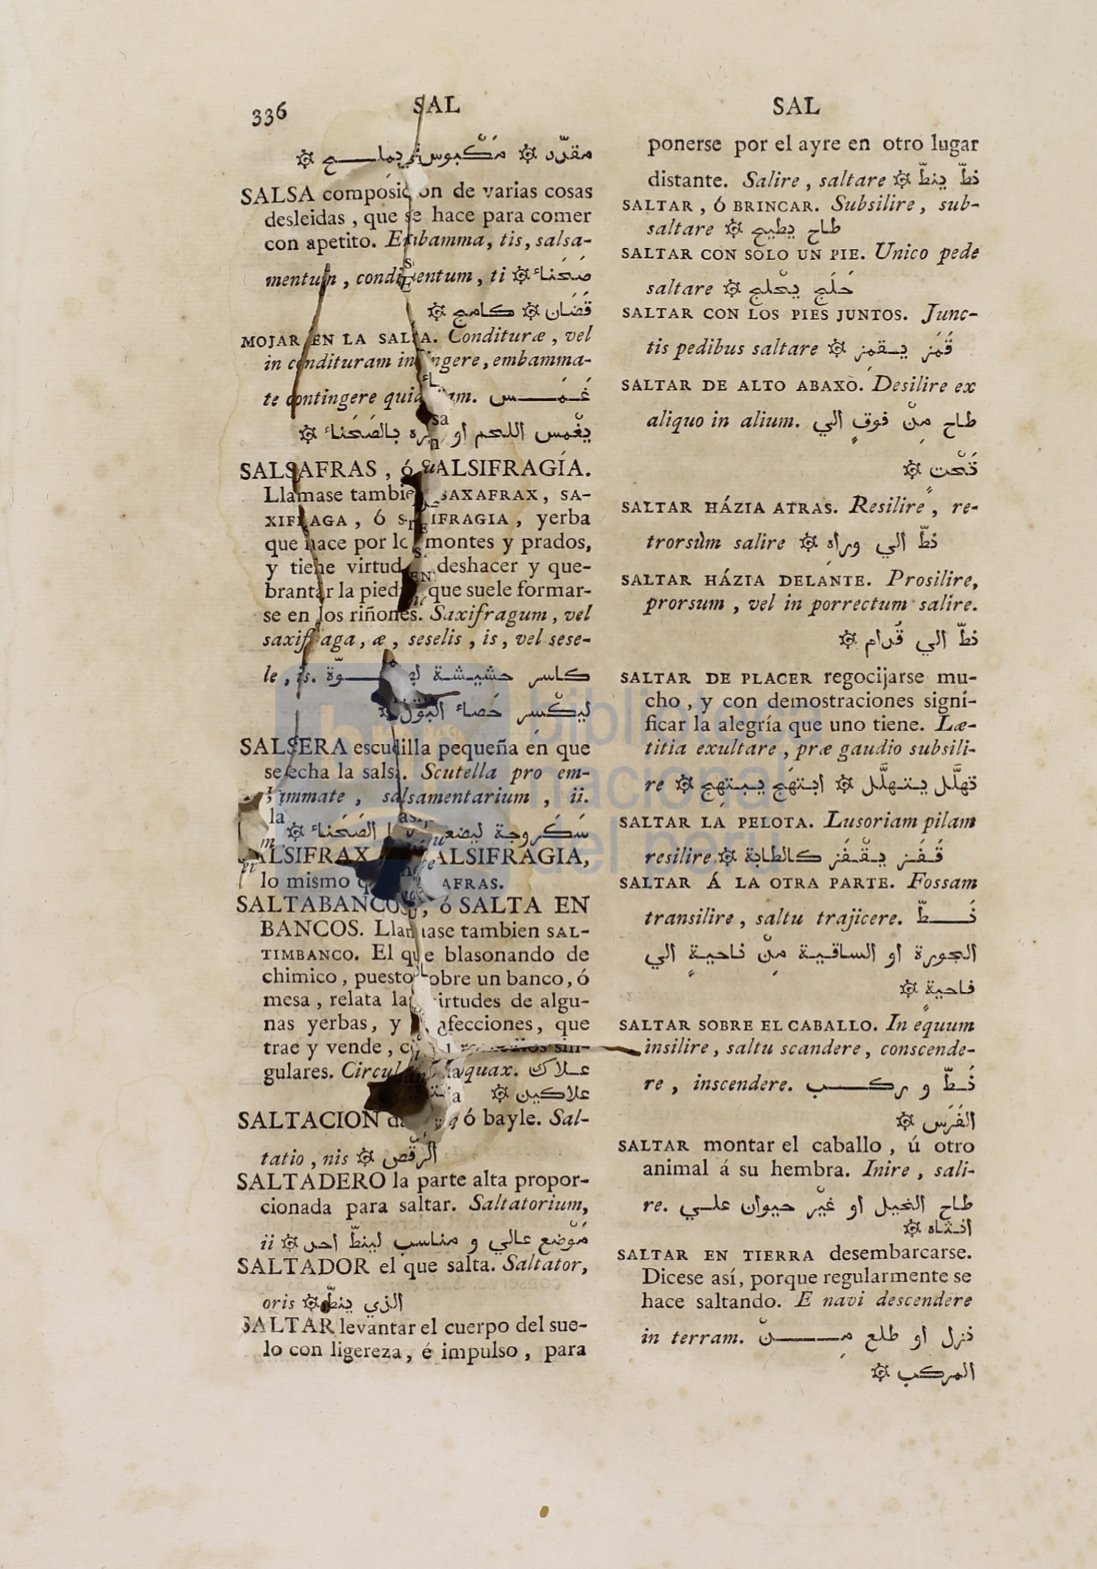 336
SAL
SAL
مقدّد ۞ مَكْبوس
SALSA composicion de varias cosas
desleidas , que se hace para comer
con apetito. Embamma, tis, salsa-
mentum , condimentum , ti ۞ صَحَناء
قَصَان ۞ كامج ۞
MOJAR EN LA SALSA. Conditurae , vel
in condituram intingere, embamma-
te contingere quidquam. غَمَس
يغْمِس اللحم او بالصَحَناء ۞
SALSAFRAS , ó SALSIFRAGÍA.
Llamase tambien SAXAFRAX , SA-
XIFRAGA , ó SALSIFRAGIA , yerba
que nace por los montes y prados,
y tiene virtud de deshacer y que-
brantar la piedra que suele formar-
se en los riñones. Saxifragum , vel
saxifraga, æ , seselis , is , vel sese-
le , is. كاسر حشيشة قوّة
ليكْسر حَصاء البَوْل ۞
SALSERA escudilla pequeña en que
se echa la salsa. Scutella pro em-
bammate , salsamentarium , ii.
سَكَروجة ليضع الصَحَناء ۞
SALSIFRAX SALSIFRAGIA,
lo mismo que AFRAS.
SALTABANCOS , ó SALTA EN
BANCOS. Llamase tambien SAL-
TIMBANCO. El que blasonando de
chimico , puesto sobre un banco, ó
mesa , relata las virtudes de algu-
nas yerbas, y confecciones, que
trae y vende , sin-
gulares. Circulator loquax. علاك
علاكين ۞
SALTACION ó bayle. Sal-
tatio , nis ۞ الرقْص
SALTADERO la parte alta propor-
cionada para saltar. Saltatorium,
ii ۞ مَوْضع عالي و مناسب لينطّ احد
SALTADOR el que salta. Saltator,
oris ۞ الذي ينطّ
SALTAR levantar el cuerpo del sue-
lo con ligereza, é impulso , para
ponerse por el ayre en otro lugar
distante. Salire , saltare ۞ نطّ ينطّ
SALTAR , Ó BRINCAR. Subsilire , sub-
saltare ۞ طاح يطيح
SALTAR CON SOLO UN PIE. Unico pede
saltare ۞ حَلَج يحْلج
SALTAR CON LOS PIES JUNTOS. Junc-
tis pedibus saltare ۞ قَمَز يقمِز
SALTAR DE ALTO ABAXO. Desilire ex
aliquo in alium. طاح مِنْ فوق الي
تَحْت ۞
SALTAR HÁZIA ATRAS. Resilire , re-
trorsùm salire ۞ نطّ الي وراه
SALTAR HÁZIA DELANTE. Prosilire,
prorsum , vel in porrectum salire.
نطّ الي قُدام ۞
SALTAR DE PLACER regocijarse mu-
cho , y con demostraciones signi-
ficar la alegría que uno tiene. Læ-
titia exultare , præ gaudio subsili-
re ۞ تهلَّل يتهلَّل ۞ ابتهَج يبتهج
SALTAR LA PELOTA. Lusoriam pilam
resilire ۞ قَفَز يقْفَز كالطابة
SALTAR Á LA OTRA PARTE. Fossam
transilire , saltu trajicere. نَطّ
الجورة او الساقية مِنْ ناحيةٍ الي
ناحيةٍ ۞
SALTAR SOBRE EL CABALLO. In equum
insilire , saltu scandere , conscende-
re , inscendere. نَطّ و ركب
الفَرَس ۞
SALTAR montar el caballo , ú otro
animal á su hembra. Inire , sali-
re. طاح الخيل او غيْر حيوان علي
انثاه ۞
SALTAR EN TIERRA desembarcarse.
Dicese así, porque regularmente se
hace saltando. E navi descendere
in terram. نزل او طلع مِنْ
المركب ۞
biblioteca
nacional
del perú